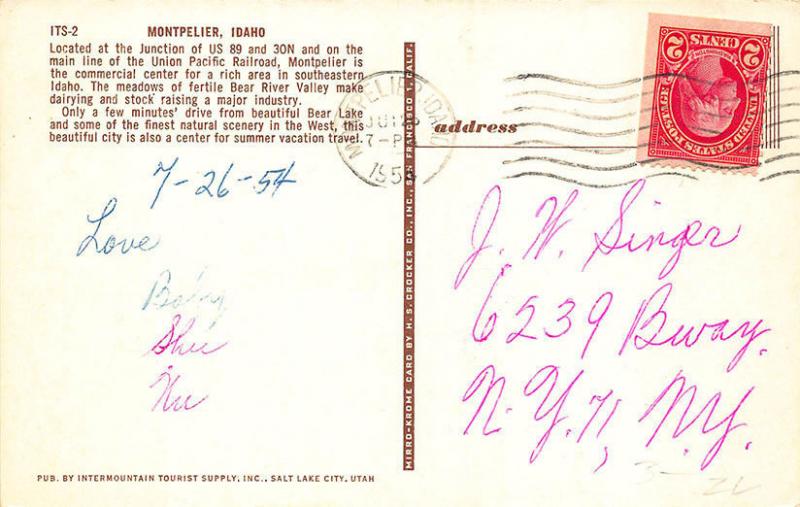 ITS-2 MONTPELIER, IDAHO
Located at the Junction of US 89 and 30N and on the
main line of the Union Pacific Railroad, Montpelier is
the commercial center for a rich area in southeastern
Idaho. The meadows of fertile Bear River Valley make
dairying and stock raising a major industry.
Only a few minutes' drive from beautiful Bear Lake
and some of the finest natural scenery in the West, this
beautiful city is also a center for summer vacation travel.
7-26-54
Love
Baby
Shu
Nu
PUB. BY INTERMOUNTAIN TOURIST SUPPLY, INC., SALT LAKE CITY, UTAH
MIRRO-KROME CARD BY H. S. CROCKER CO., INC., SAN FRANCISCO 1, CALIF.
MONTPELIER IDAHO
7-P
1954
address
UNITED STATES POSTAGE
WASHINGTON
2 CENTS 2
J. W. Singer
6239 Bway.
N.Y. 71, N.Y.